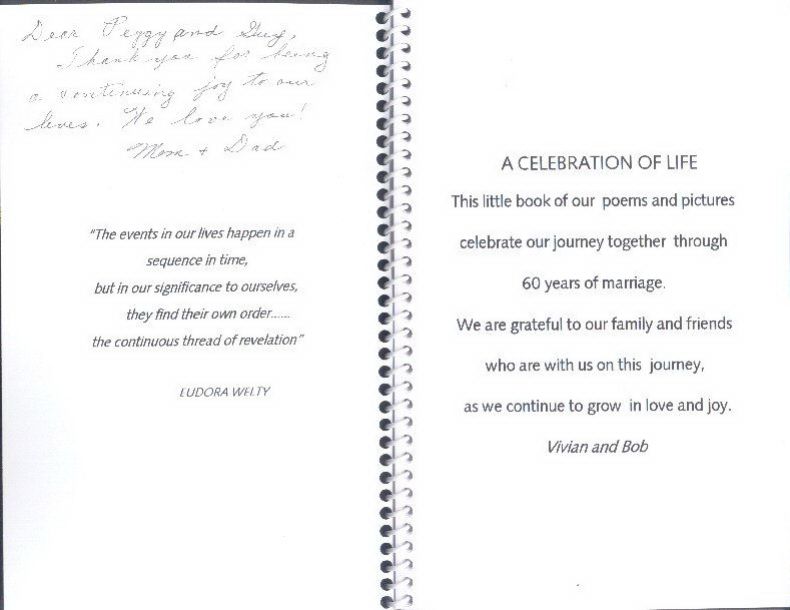 Dear Peggy and Guy,
Thank you for being
a continuing joy to our
lives. We love you!
Mom + Dad
"The events in our lives happen in a
sequence in time,
but in our significance to ourselves,
they find their own order......
the continuous thread of revelation"
EUDORA WELTY
A CELEBRATION OF LIFE
This little book of our poems and pictures
celebrate our journey together through
60 years of marriage.
We are grateful to our family and friends
who are with us on this journey,
as we continue to grow in love and joy.
Vivian and Bob